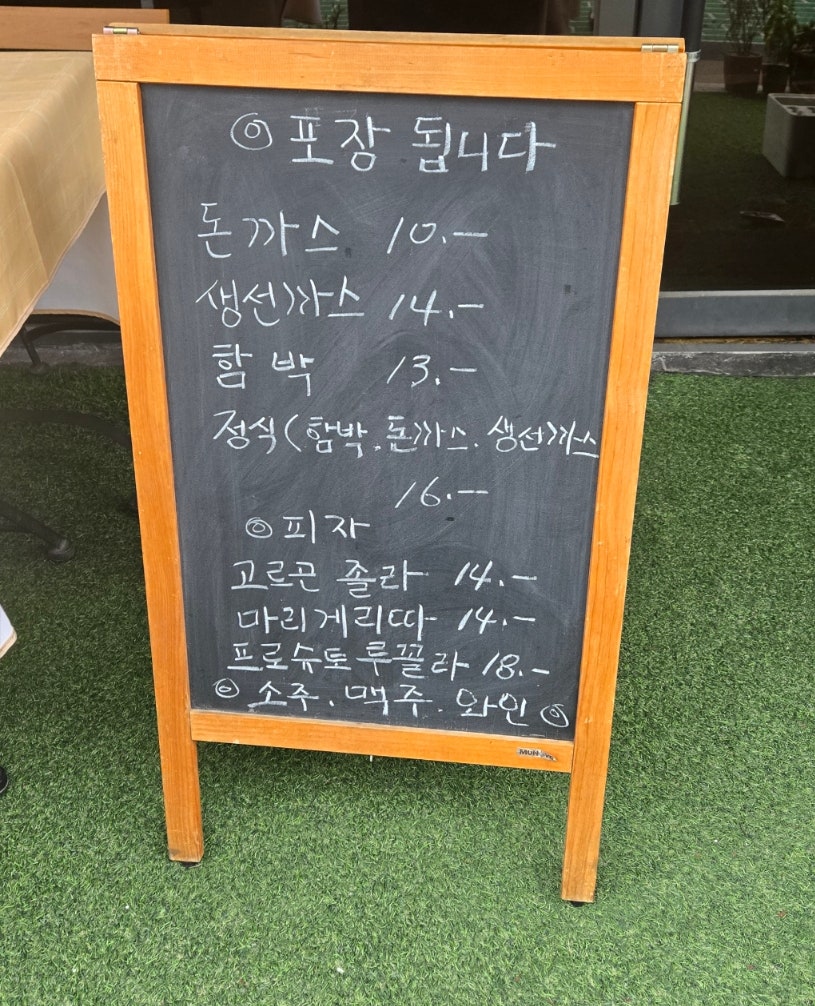 ◎ 포장 됩니다
돈까스 10.-
생선까스 14.-
함박 13.-
정식(함박.돈까스.생선까스
16.-
◎ 피자
고르곤 졸라 14.-
마리게리따 14.-
프로슈토 루꼴라 18.-
◎ 소주.맥주.와인 ◎